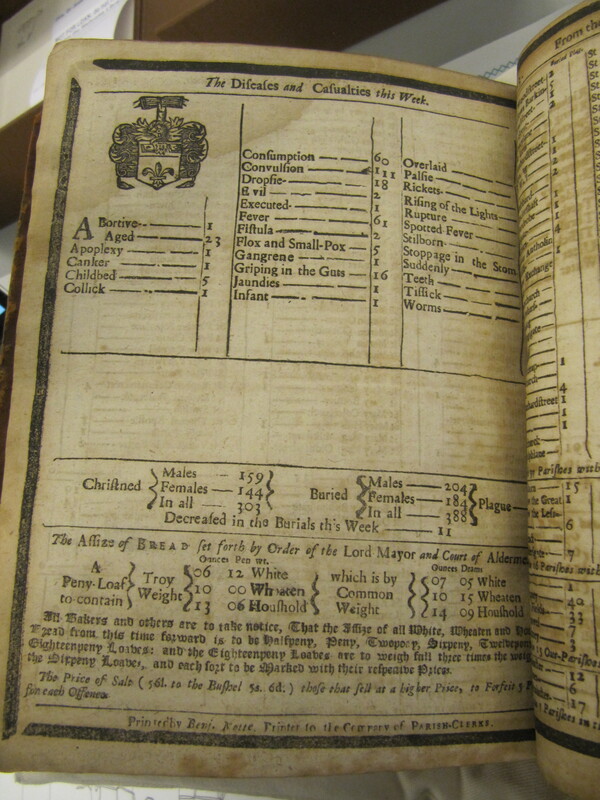 The Diſeaſes and Caſualties this Week.
ABortive 1
Aged 23
Apoplexy 1
Canker 1
Childbed 5
Collick 1
Conſumption 60
Convulſion 111
Dropſie 18
Evil 2
Executed 1
Fever 61
Fiſtula 2
Flox and Small-Pox 5
Gangrene 1
Griping in the Guts 16
Jaundies 1
Infant 1
Overlaid
Palſie
Rickets
Riſing of the Lights
Rupture
Spotted Fever
Stilborn
Stoppage in the Stom
Suddenly
Teeth
Tiſſick
Worms
Chriſtned
Males 159
Females 144
In all 303
Buried
Males 204
Females 184
In all 388
Plague
Decreaſed in the Burials this Week 11
The Aſſize of BREAD ſet forth by Order of the Lord Mayor and Court of Alderme
A Peny-Loaf to contain
Troy Weight
Ounces Pen wt.
06 12 White
10 00 Wheaten
13 06 Houſhold
which is by Common Weight
Ounces Drams
07 05 White
10 15 Wheaten
14 09 Houſhold
All Bakers and others are to take notice, That the Aſſize of all White, Wheaten and Ho
Bread from this time forward is to be Halfpeny, Peny, Twopeny, Sixpeny, Twelvepen
Eighteenpeny Loaves: and the Eighteenpeny Loaves are to weigh full three times the weig
the Sixpeny Loaves, and each ſort to be Marked with their reſpective Prices.
The Price of Salt (56l. to the Buſhel 5s. 6d.) thoſe that ſell at a higher Price, to Forfeit 5
for each Offence.
Printed by Benj. Printer to the Company of PARISH-CLERKS.
From the